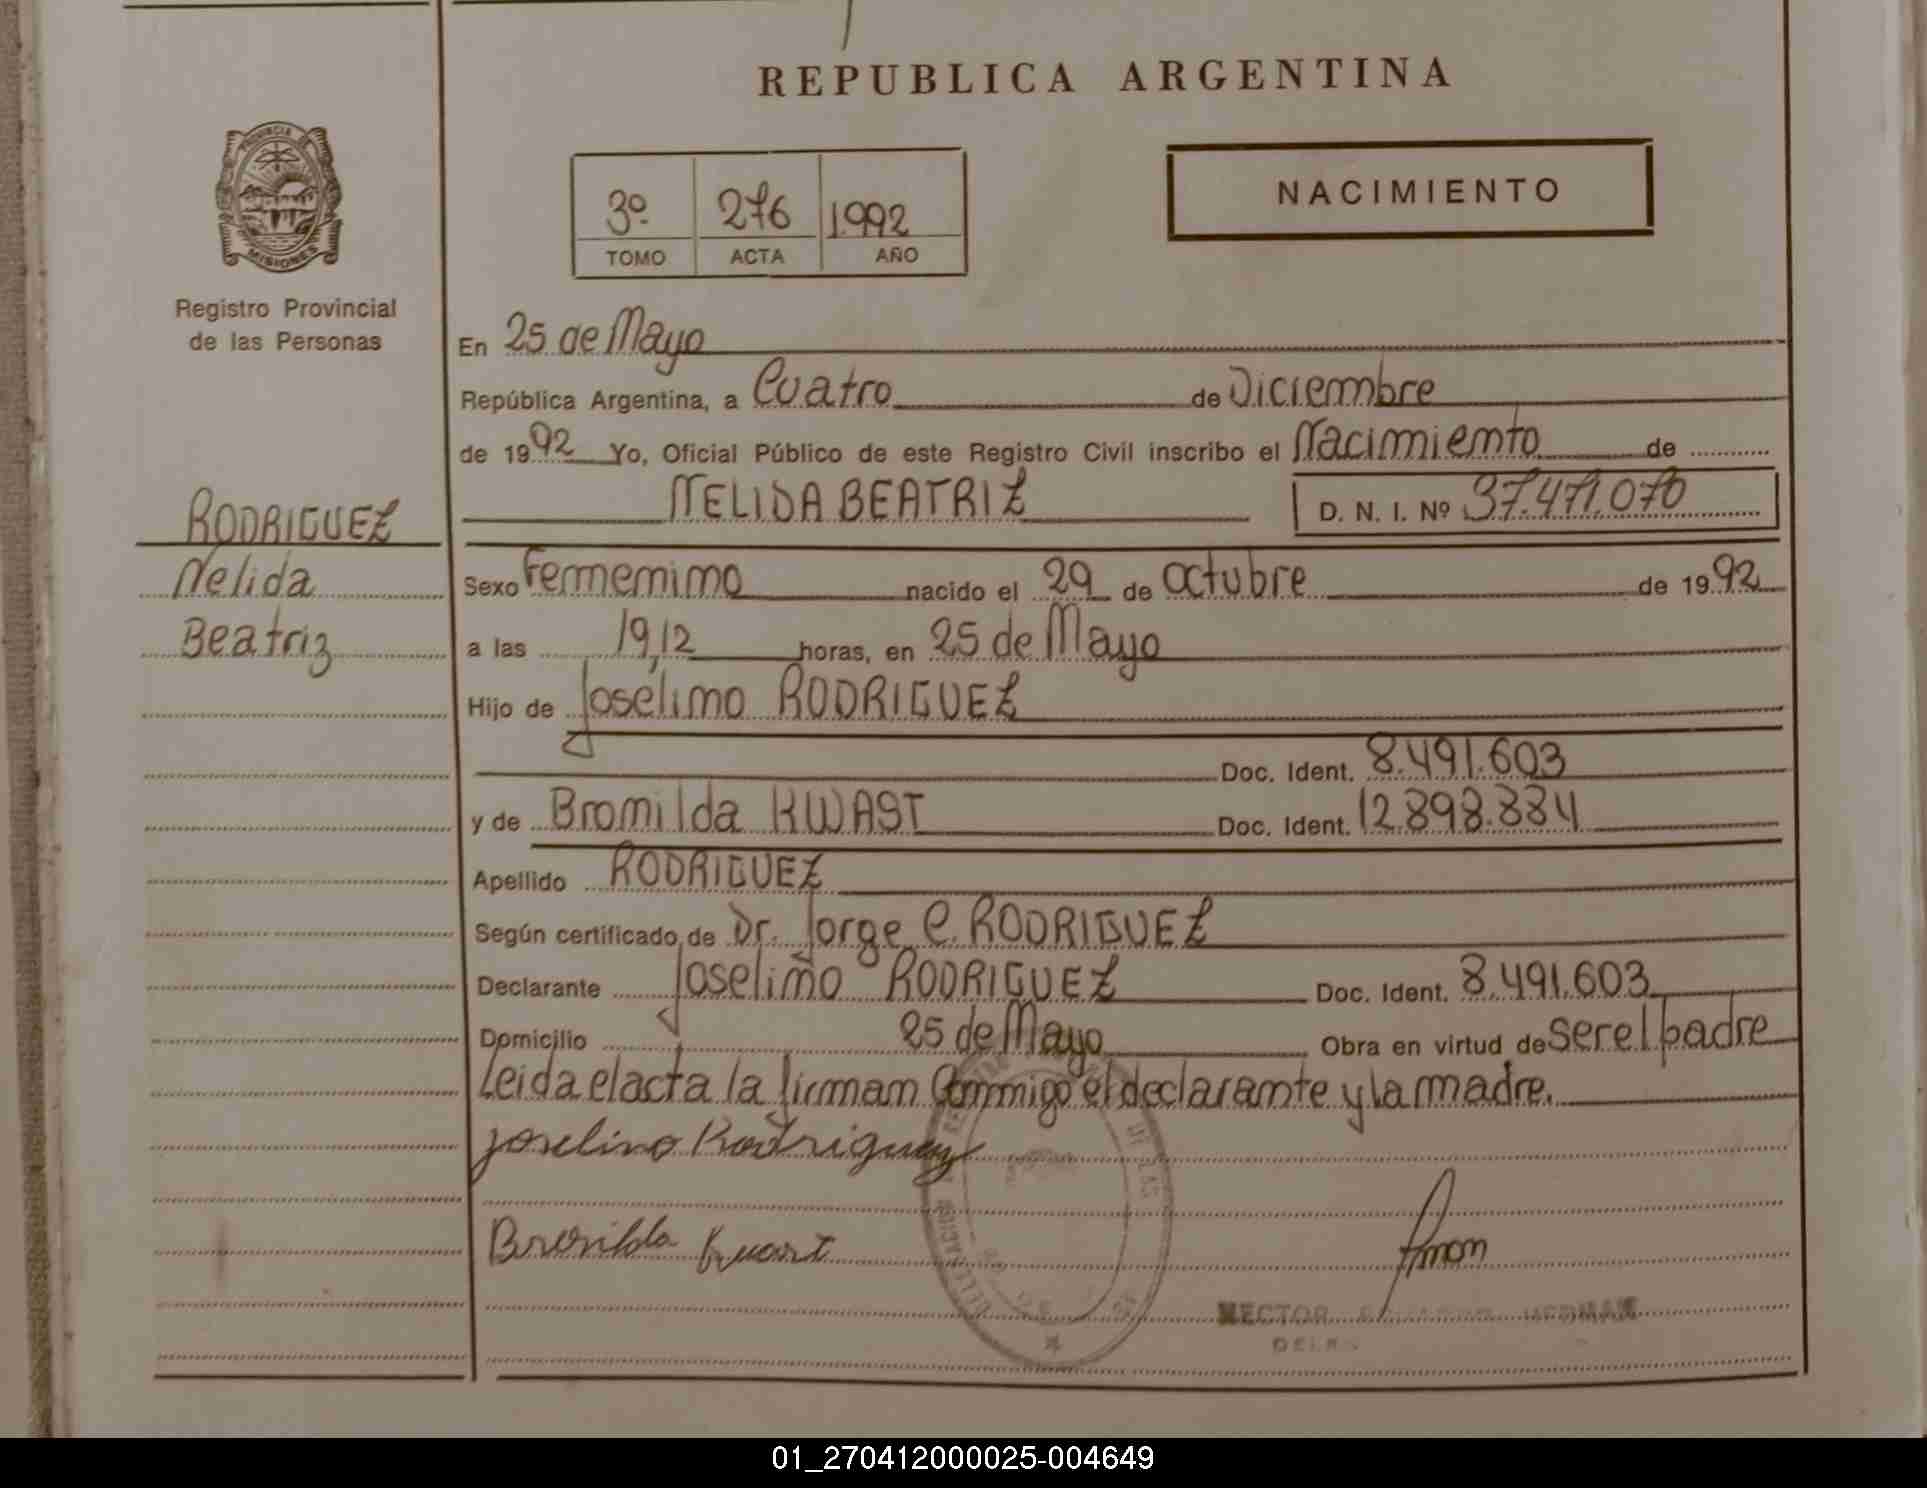 REPUBLICA ARGENTINA
PROVINCIA DE
MISIONES
Registro Provincial
de las Personas
3º 276 1.992
TOMO ACTA AÑO
NACIMIENTO
En 25 de Mayo
República Argentina, a Cuatro de Diciembre
de 1992 Yo, Oficial Público de este Registro Civil inscribo el Nacimiento de
NELIDA BEATRIZ D. N. I. Nº 37.471.070
RODRIGUEZ
Nelida
Beatriz
Sexo Femenino nacido el 29 de octubre de 1992
a las 19,12 horas, en 25 de Mayo
Hijo de Joselino RODRIGUEZ
Doc. Ident. 8.491.603
y de Bronilda KWAST Doc. Ident. 12.898.884
Apellido RODRIGUEZ
Según certificado de Dr. Jorge C. RODRIGUEZ
Declarante Joselino RODRIGUEZ Doc. Ident. 8.491.603
Domicilio 25 de Mayo Obra en virtud de ser el padre
Leida el acta la firman Conmigo el declarante y la madre.
Joselino Rodriguez
Bronilda Kwast
HECTOR
01_270412000025-004649